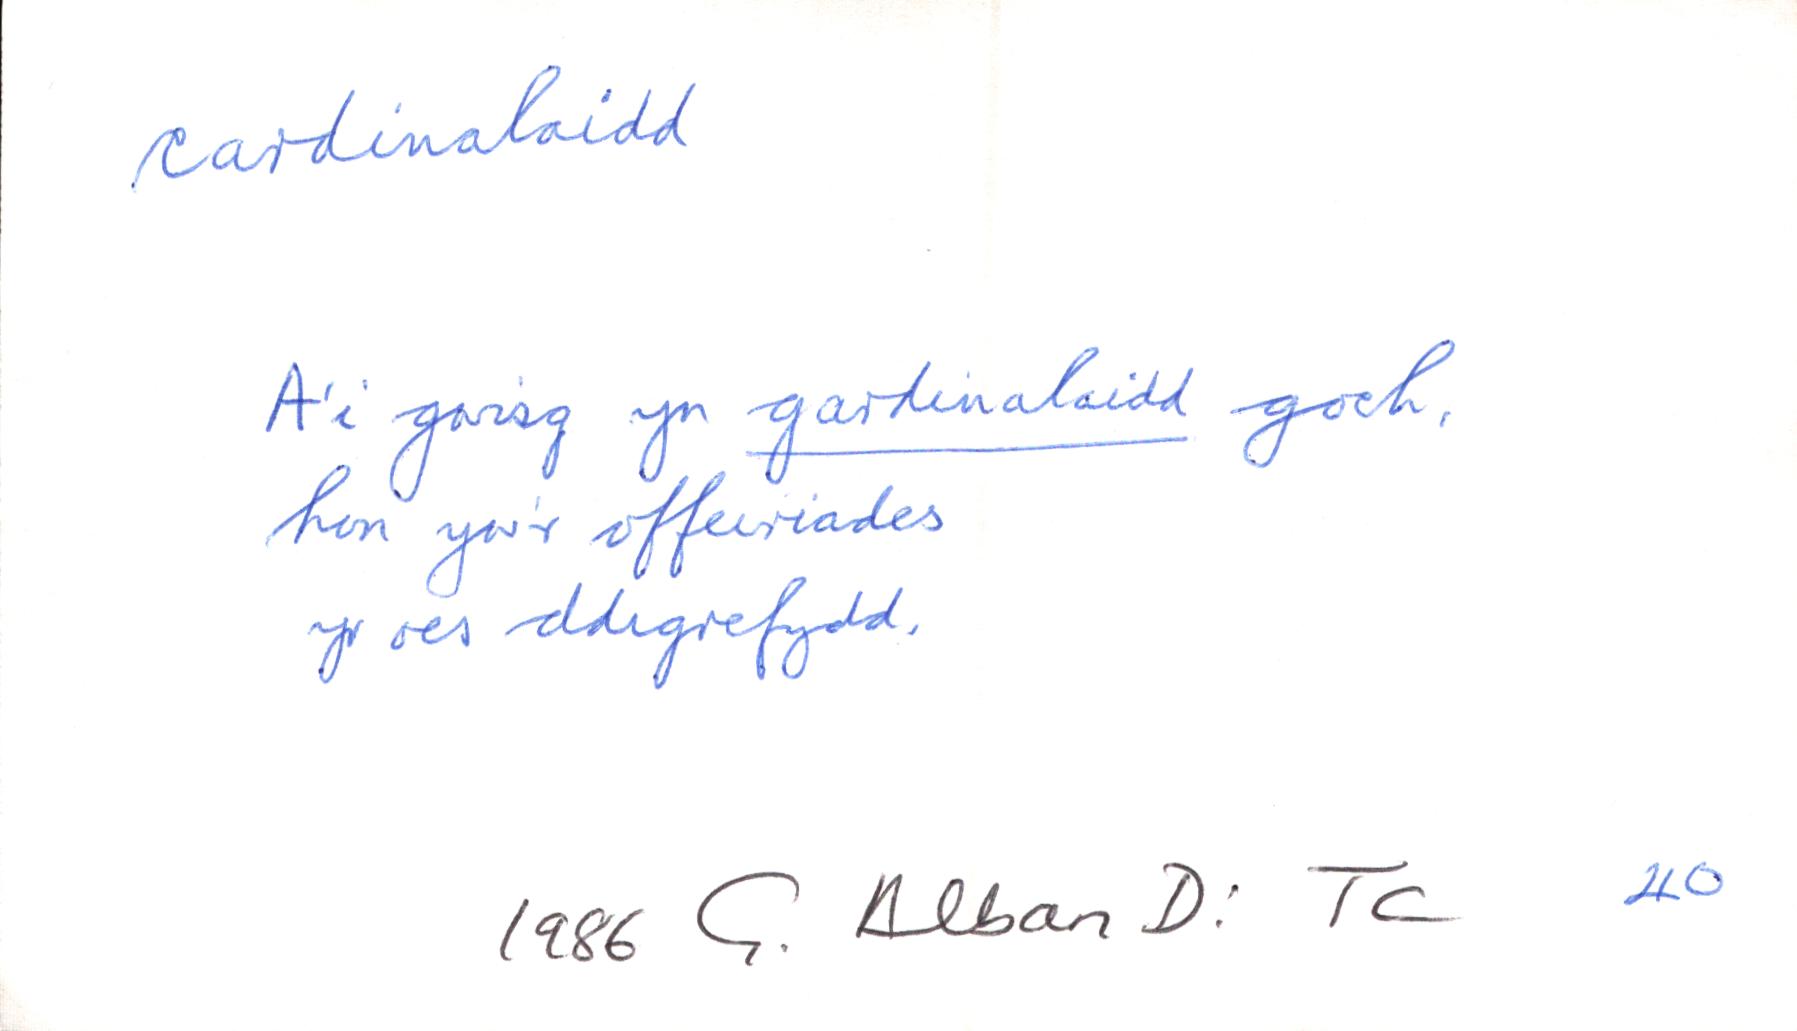 cardinalaidd
A'i gwisg yn gardinalaidd goch,
hon yw'r offeiriades
yr oes ddigrefydd.
1986 G. Alban D: TC 40